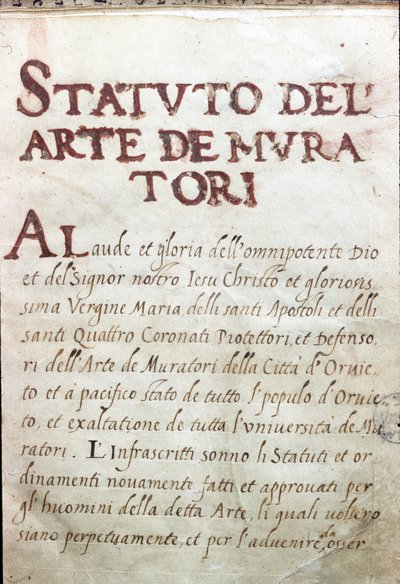 STATVTO DEL'
ARTE DE MVRA
TORI
A Laude et gloria dell'omnipotente Dio
et del Signor nostro Iesu Christo et gloriosis
sima Vergine Maria delli santi Apostoli et delli
santi Quattro Coronati Protettori, et Defenso,
ri dell'Arte de Muratori della Città d'Orvie,
to et à pacifico stato de tutto l'populo d'Orvie
to, et exaltatione de tutta l'università de Mu
ratori. L'Infrascritti sonno li Statuti et or
dinamenti novamente fatti et approvati per
gl'huomini della detta Arte, li quali volsero
siano perpetuamente, et per l'advenire da osser